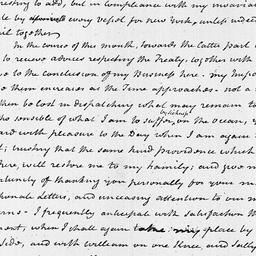 resting to add, but in compliance with my invaria
le by almost every vessel for new york, unless indee
ail together
In the course of this month, towards the latter part
to recieve advices respecting the Treaty, together with
o to the conclusion of my Business here. my Impa
o them encreases as the Time approaches - not a
then be lost in dispatching what may remain to
tho sensible of what I am to suffer, perhaps, on the Ocean,
ard with pleasure to the Day when I am again
t; trusting that the same kind providence which
here, will restore me to my family; and give m
tunity of thanking you personally for your m
tional letters, and unceasing attention to our m
erns - I frequently anticipate with Satisfaction th
ment, when I shall again take my place by
Side, and with William on one Knee, and Sally